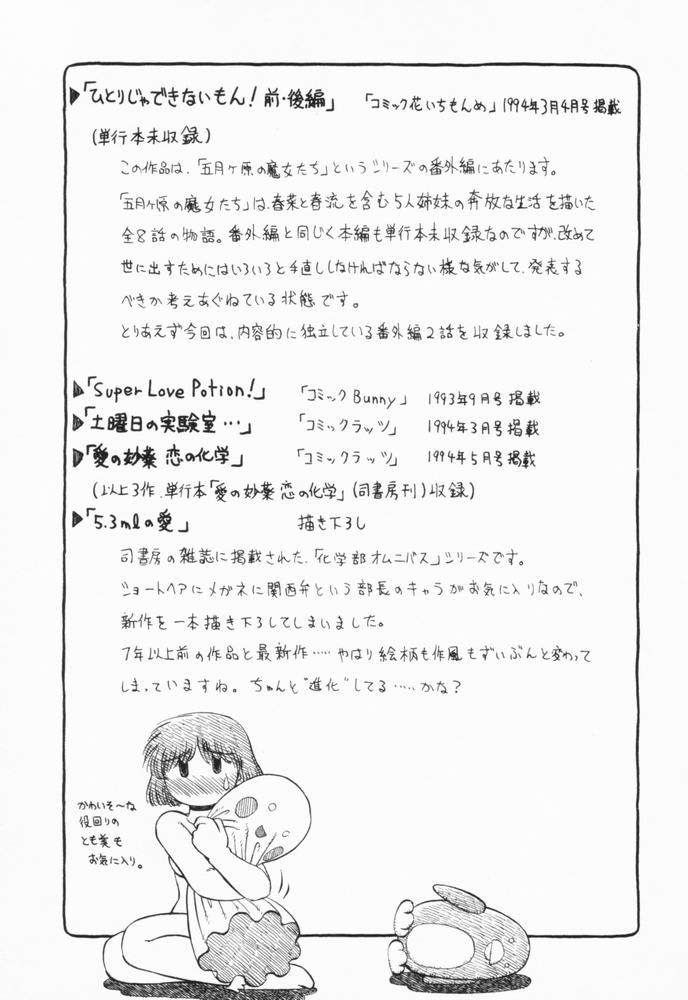 「ひとりじゃできないもん! 前・後編」 「コミック花いちもんめ」1994年3月4月号掲載
(単行本未収録)
この作品は、「五月ヶ原の魔女たち」というシリーズの番外編にあたります。
「五月ヶ原の魔女たち」は、春菜と春流を含む5人姉妹の奔放な生活を描いた
全8話の物語。番外編と同じく本編も単行本未収録なのですが、改めて
世に出すためにはいろいろと手直ししなければならない様な気がして、発表する
べきか考えあぐねている状態です。
とりあえず今回は、内容的に独立している番外編2話を収録しました。
「Super Love Potion!」 「コミックBunny」 1993年9月号掲載
「土曜日の実験室…」 「コミックラッツ」 1994年3月号掲載
「愛の妙薬 恋の化学」 「コミックラッツ」 1994年5月号掲載
(以上3作、単行本「愛の妙薬 恋の化学」(司書房刊)収録)
「5.3mlの愛」 描き下ろし
司書房の雑誌に掲載された、「化学部オムニバス」シリーズです。
ショートヘアにメガネに関西弁という部長のキャラがお気に入りなので、
新作を一本描き下ろしてしまいました。
7年以上前の作品と最新作……やはり絵柄も作風もずいぶんと変わって
しまっていますね。ちゃんと"進化"してる……かな?
かわいそ〜な
役回りの
とも美も
お気に入り。